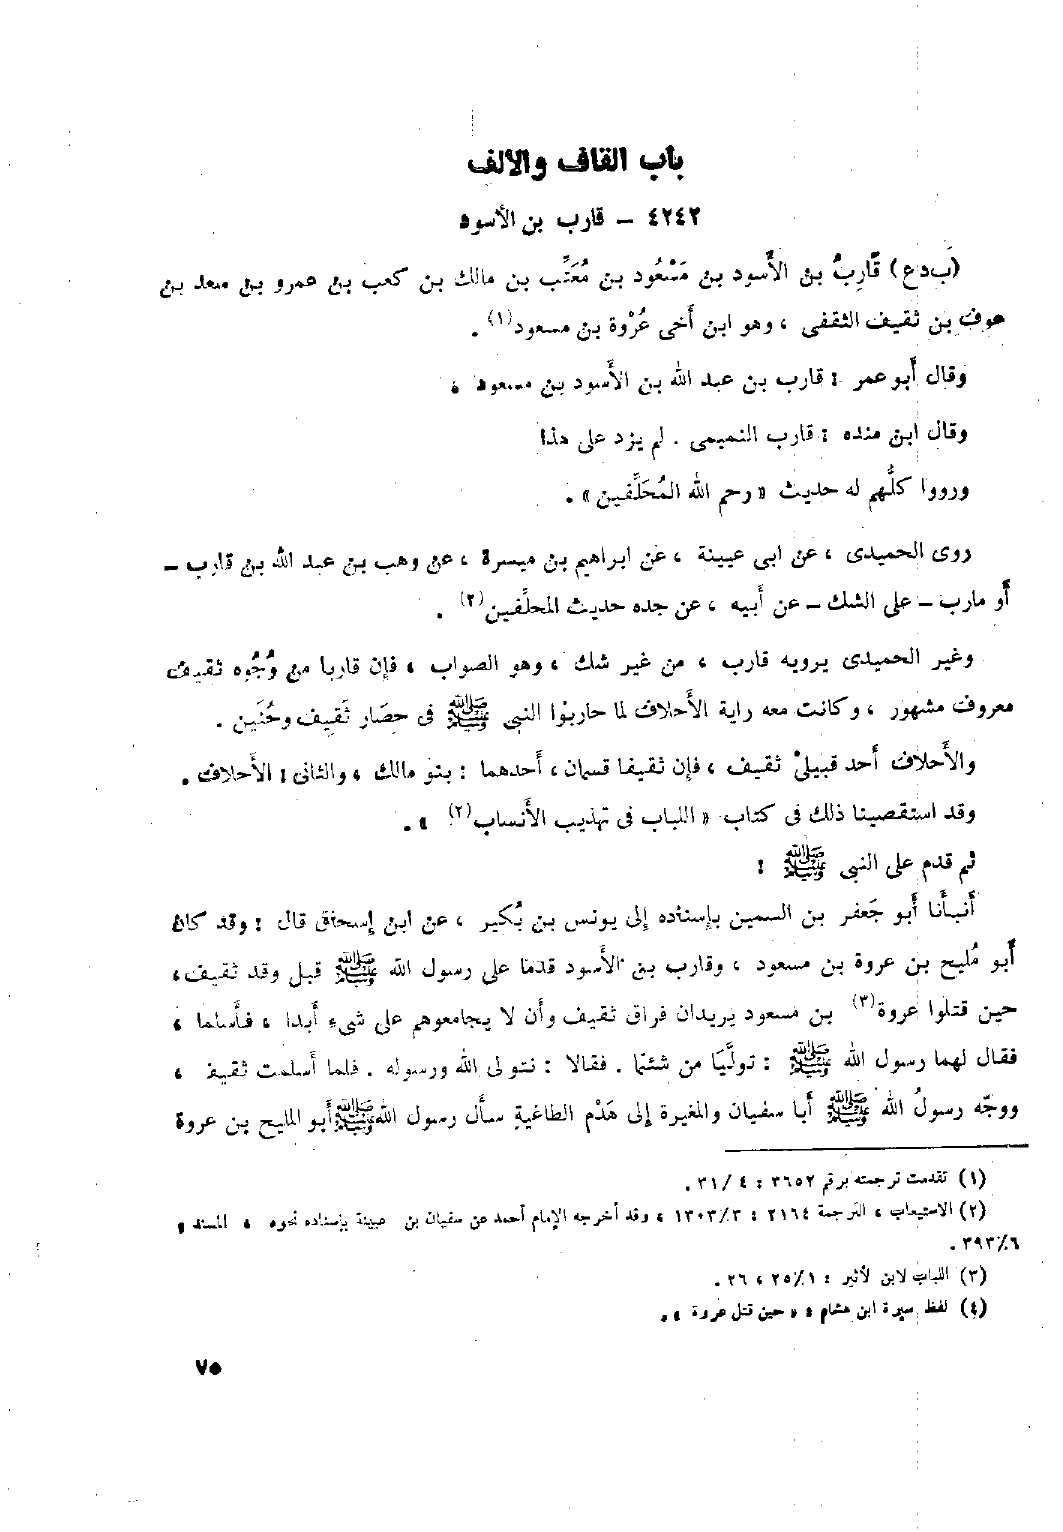 باب القاف والألف
٤٢٤٢ – قارب بن الأسود
(ب‌د‌ع) قَارِبُ بن الأَسود بن مَسْعُود بن مُعَتِّب بن مالك بن كعب بن عمرو بن سعد بن
عوف بن ثقيف الثقفى ، وهو ابن أَخى عُرْوة بن مسعود(١) .
وقال أَبو عمر : قارب بن عبد الله بن الأَسود بن مسعود ،
وقال ابن منده : قارب التميمى . لم يزد على هذا
ورووا كلُّهم له حديث « رحم الله المُحَلِّقين » .
روى الحميدى ، عن ابى عيينة ، عن ابراهيم بن ميسرة ، عن وهب بن عبد الله بن قارب –
أَو مارب – على الشك – عن أَبيه ، عن جده حديث المحلِّقين(٢) .
وغير الحميدى يرويه قارب ، من غير شك ، وهو الصواب ، فإن قاربا من وُجُوه ثقيف
معروف مشهور ، وكانت معه راية الأَحلاف لما حاربوا النبى ﷺ فى حِصَار ثَقِيف وحُنَين .
والأَحلاف أَحد قبيلىْ ثقيف ، فإن ثقيفا قسمان ، أَحدهما : بنو مالك ، والثانى : الأَحلاف .
وقد استقصينا ذلك فى كتاب « اللباب فى تهذيب الأَنساب(٢) » .
ثم قدم على النبى ﷺ :
أَنبأَنا أَبو جَعفر بن السمين بإسناده إلى يونس بن بُكير ، عن ابن إسحاق قال : وقد كان
أَبو مُليح بن عروة بن مسعود ، وقارب بن الأَسود قدما على رسول الله ﷺ قبل وفد ثقيف ،
حين قتلوا عروة(٣) بن مسعود يريدان فراق ثقيف وأن لا يجامعوهم على شىءٍ أَبدا ، فأَسلما ،
فقال لهما رسول الله ﷺ : تولَّيَا من شئتما . فقالا : نتولى الله ورسوله . فلما أَسلمت ثقيف ،
ووجّه رسولُ الله ﷺ أَبا سفيان والمغيرة إلى هَدْم الطاغيةِ سأَل رسول الله ﷺ أَبو المليح بن عروة
(١) تقدمت ترجمته برقم ٣٦٥٢ : ٤ / ٣١ .
(٢) الاستيعاب ، الترجمة ٢١٦٤ : ٣/ ١٣٠٣ ، وقد أخرجه الإمام أحمد عن سفيان بن عيينة بإسناده نحوه ، المسند ،
٦/ ٣٩٣ .
(٣) اللباب لابن لأثير : ١/ ٢٥ ، ٢٦ .
(٤) لفظ سيرة ابن هشام : « حين قتل عروة » .
٧٥